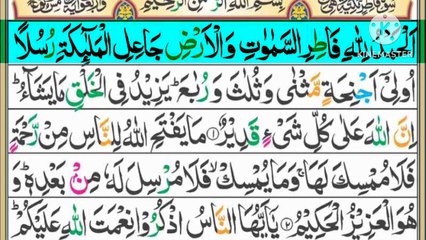 بسم الله الرحمن الرحيم
KINEMASTER
اَلْحَمْدُ لِلّٰهِ فَاطِرِ السَّمٰوٰتِ وَالْاَرْضِ جَاعِلِ الْمَلٰٓئِكَةِ رُسُلًا
اُولِیْۤ اَجْنِحَةٍ مَّثْنٰى وَثُلٰثَ وَرُبٰعَ ؕ یَزِیْدُ فِی الْخَلْقِ مَا یَشَآءُ ؕ
اِنَّ اللّٰهَ عَلٰى كُلِّ شَیْءٍ قَدِیْرٌ ۝۱ مَا یَفْتَحِ اللّٰهُ لِلنَّاسِ مِنْ رَّحْمَةٍ
فَلَا مُمْسِكَ لَهَا ۚ وَمَا یُمْسِكْ ۙ فَلَا مُرْسِلَ لَهٗ مِنْۢ بَعْدِهٖ ؕ وَ
هُوَ الْعَزِیْزُ الْحَكِیْمُ ۝۲ یٰۤاَیُّهَا النَّاسُ اذْكُرُوْا نِعْمَتَ اللّٰهِ عَلَیْكُمْ